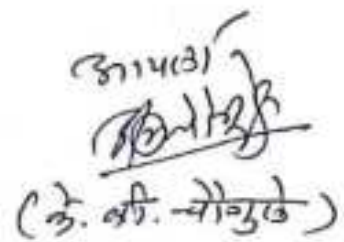 आपला
(के. बी. चौगुले)